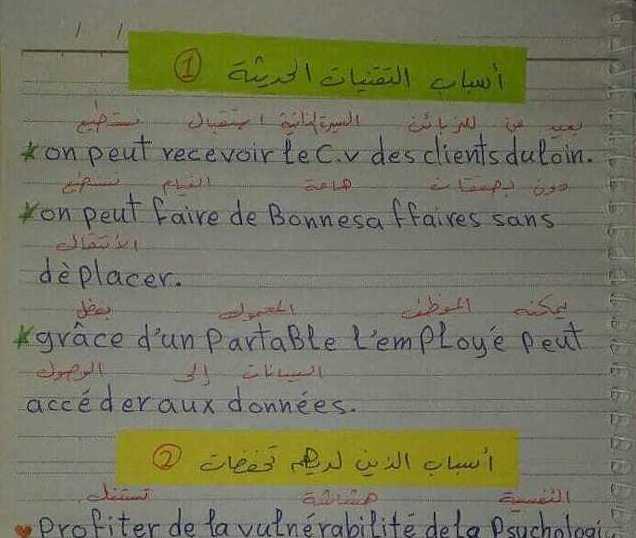 أسباب التقنيات الحديثة ①
نستطيع استقبال السيرة الذاتية للزبائن عن بعد
on peut recevoir le C.v des clients du loin.
نستطيع القيام هامة بصفقات دون
on peut faire de Bonnes affaires sans
الانتقال
dèplacer.
بفضل المحمول الموظف يمكنه
grâce d'un PartaBle l'emPloyé Peut
الوصول إلى البيانات
accéder aux données.
أسباب الذين لديهم تخفضات ②
تستغل هشاشة النفسية
Profiter de la vulnérabilité de la Psychologi